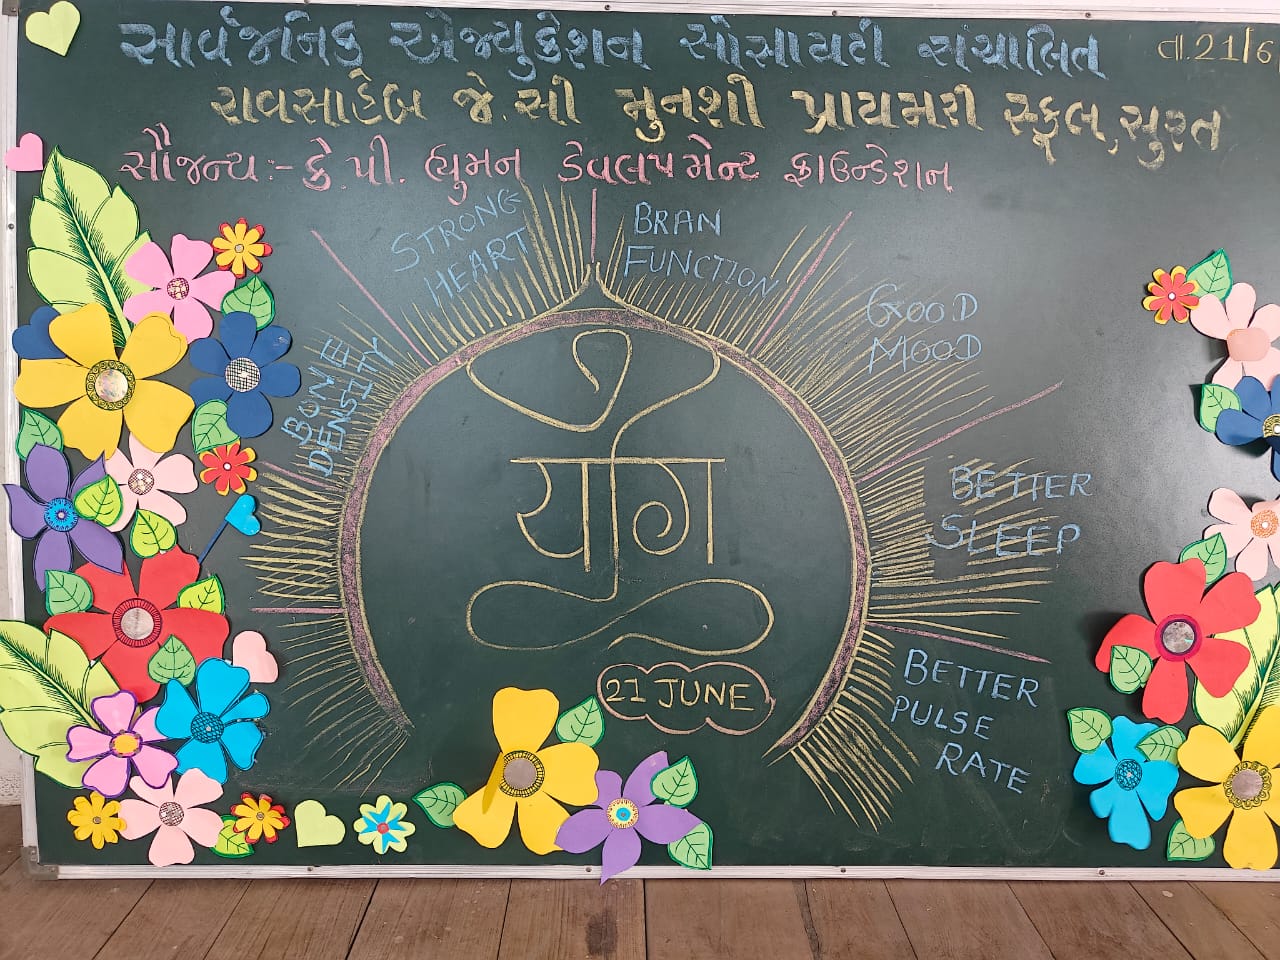 સાર્વજનિક એજ્યુકેશન સોસાયટી સંચાલિત
તા.21/6
રાવસાહેબ જે.સી મુનશી પ્રાયમરી સ્કૂલ,સુરત
સૌજન્ય:- કે.પી. હ્યુમન ડેવલપમેન્ટ ફાઉન્ડેશન
STRONG
HEART
BRAN
FUNCTION
GOOD
MOOD
BONE
DENSITY
योग
BETTER
SLEEP
BETTER
PULSE
RATE
21 JUNE